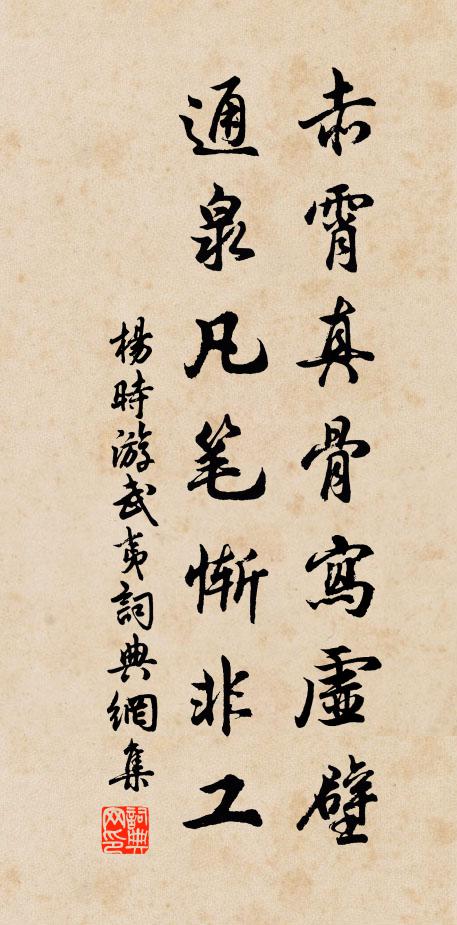 赤霄真骨寫虛壁
通泉凡笔慚非工
楊時游武夷詞典網集
詞典网印